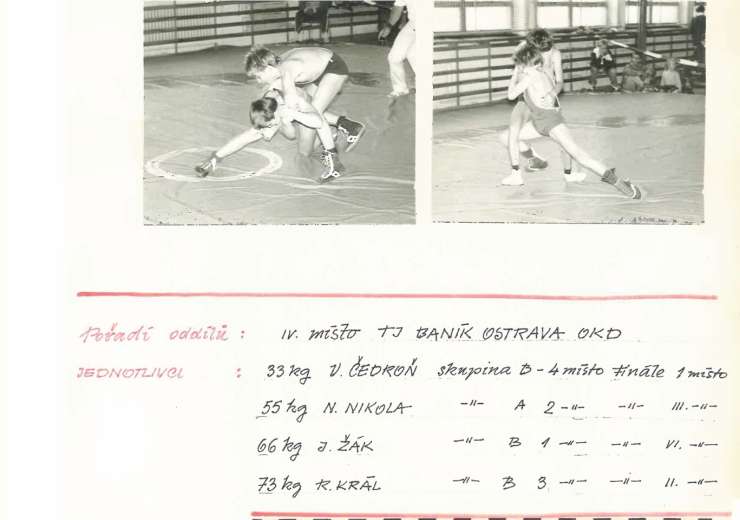 Pořadí oddílů : IV. místo TJ BANÍK OSTRAVA OKD
JEDNOTLIVCI : 33 kg V. ČEDROŇ skupina B - 4 místo finále 1 místo
55 kg N. NIKOLA -"- A 2 -"- -"- III. -"-
66 kg J. ŽÁK -"- B 1 -"- -"- VI. -"-
73 kg R. KRÁL -"- B 3 -"- -"- II. -"-